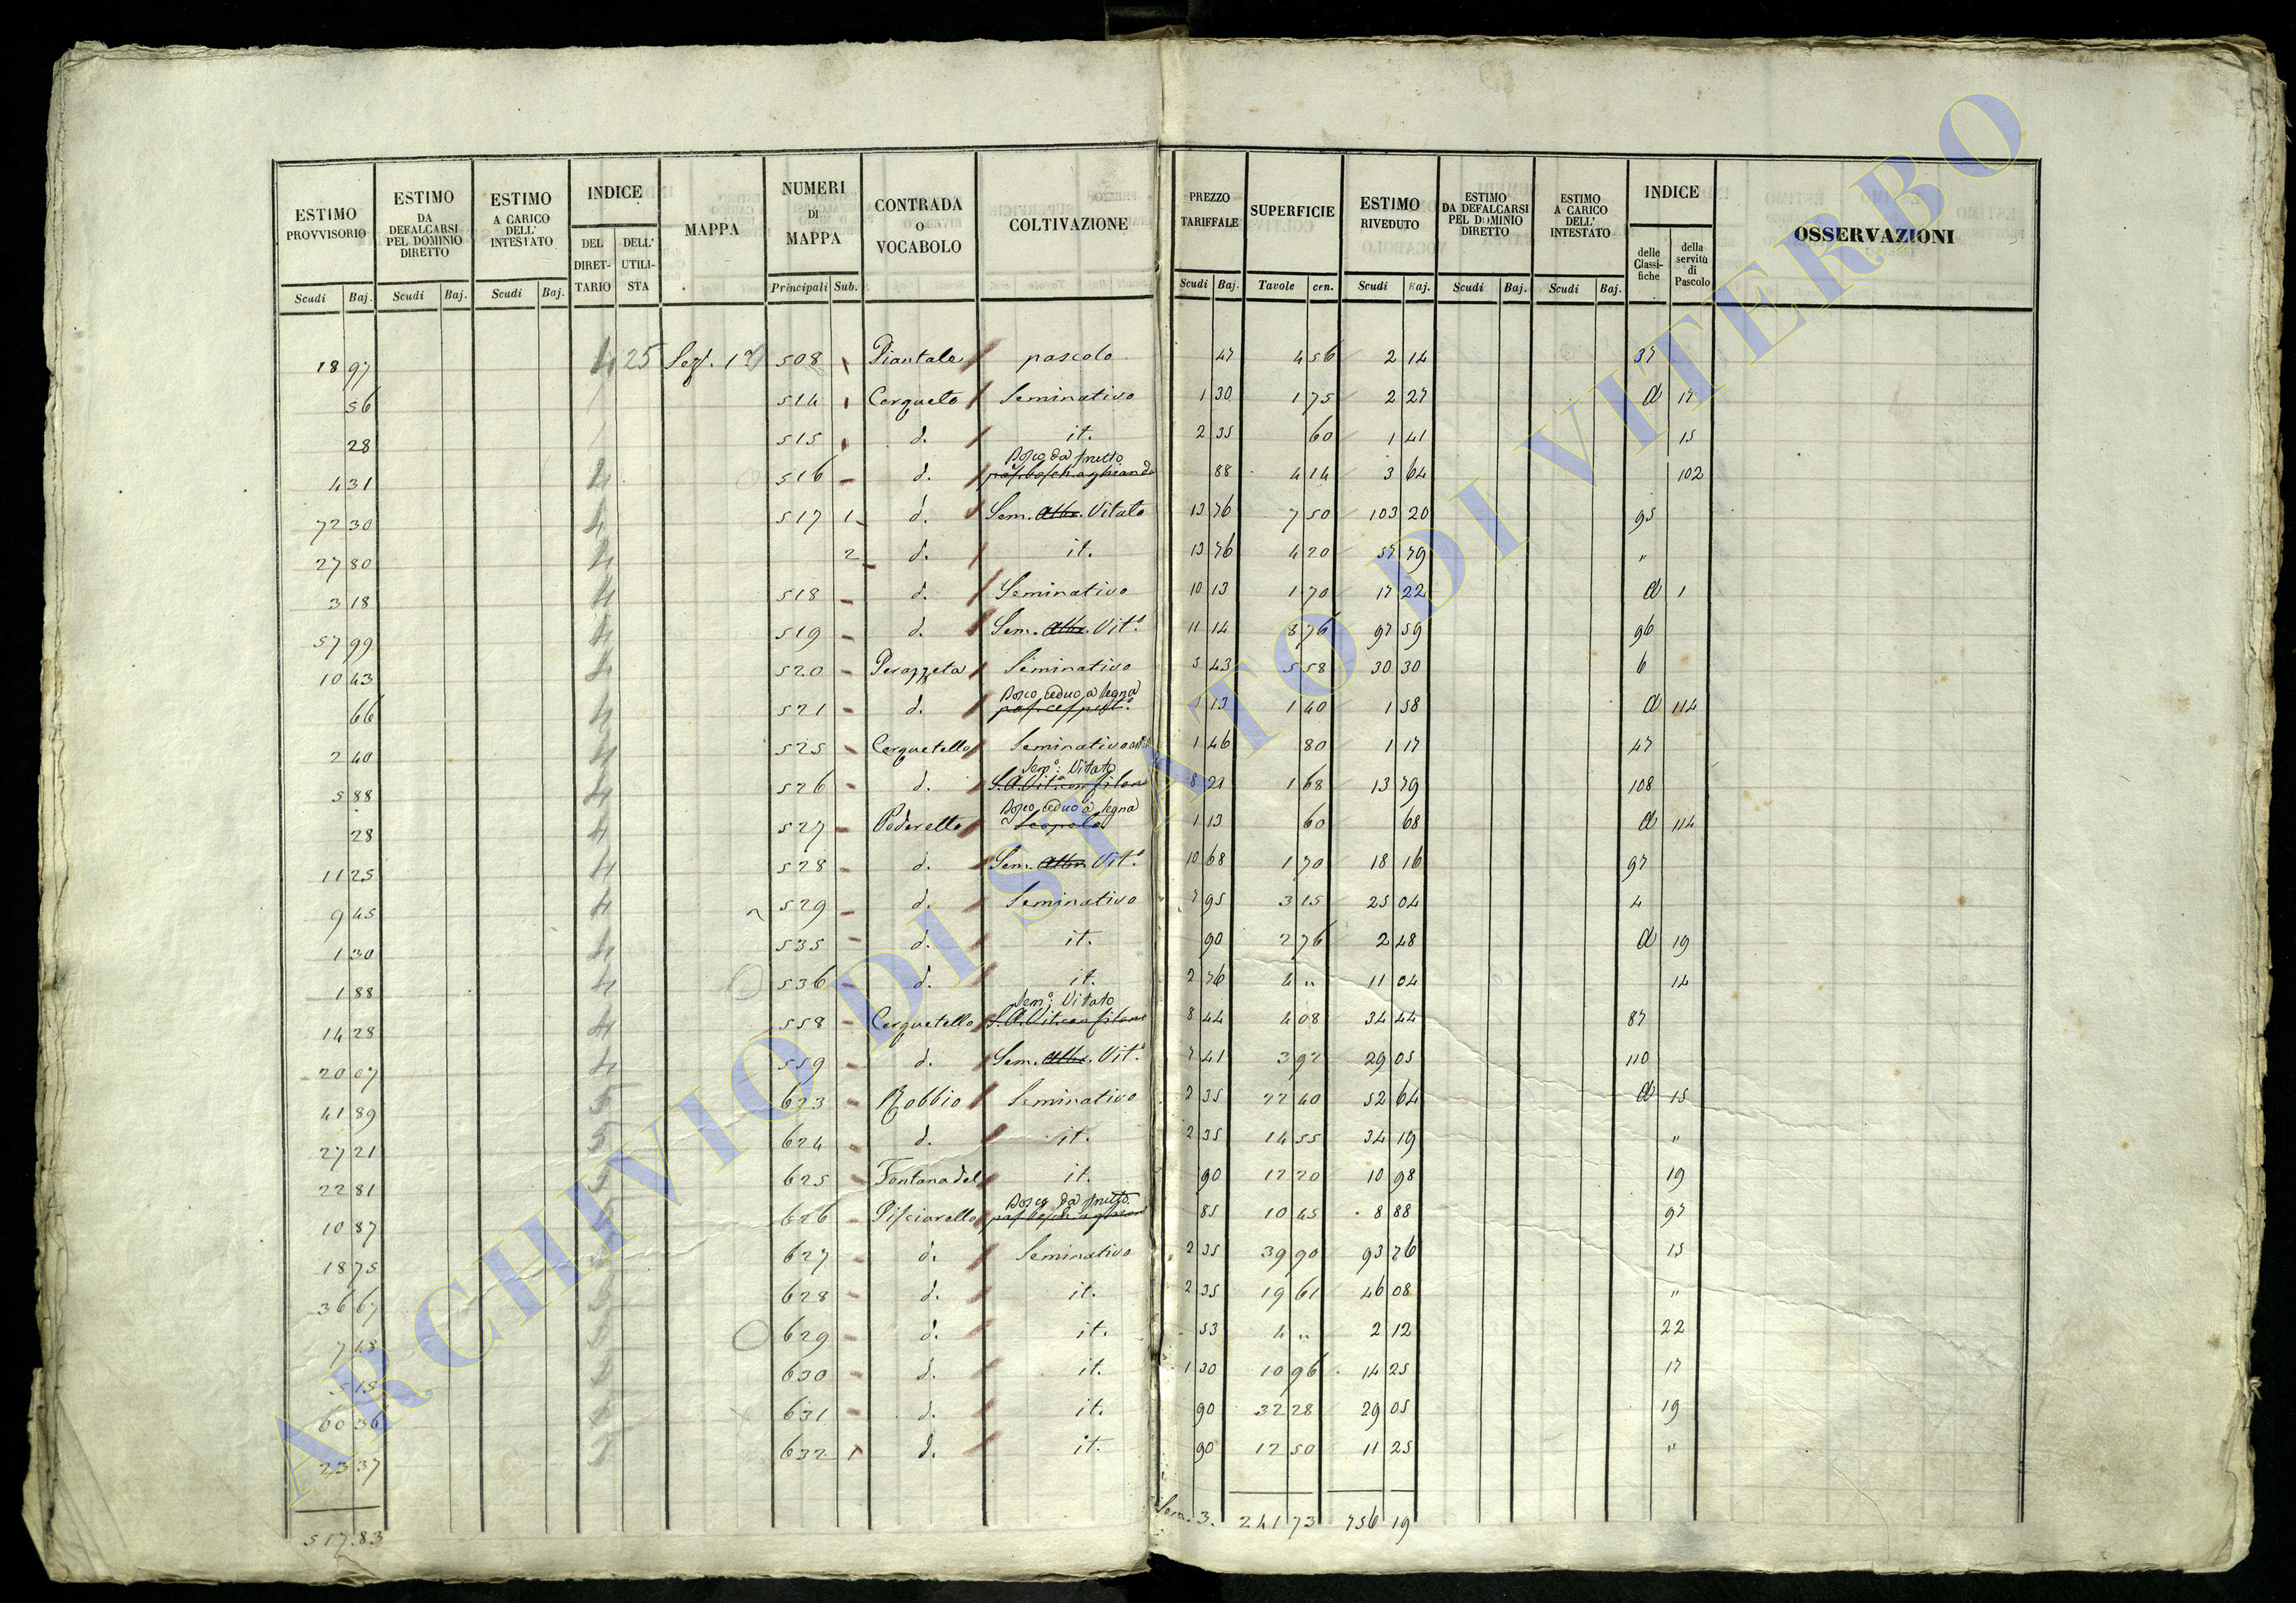 ESTIMO PROVVISORIO | ESTIMO DA DEFALCARSI PEL DOMINIO DIRETTO | ESTIMO A CARICO DELL' INTESTATO | INDICE | MAPPA | NUMERI DI MAPPA | CONTRADA O VOCABOLO | COLTIVAZIONE | PREZZO TARIFFALE | SUPERFICIE | ESTIMO RIVEDUTO | ESTIMO DA DEFALCARSI PEL DOMINIO DIRETTO | ESTIMO A CARICO DELL' INTESTATO | INDICE | OSSERVAZIONI
DEL DIRETTARIO | DELL' UTILISTA | delle Classifiche | della servitù di Pascolo
Scudi | Baj. | Scudi | Baj. | Scudi | Baj. | Principali | Sub. | Scudi | Baj. | Tavole | cen. | Scudi | Baj. | Scudi | Baj. | Scudi | Baj.
18 97 | 4 | 25 | Sez. 1a | 508 | Piantale | pascolo | 47 | 4 56 | 2 14 | 37
56 | 514 | Cerqueto | Seminativo | 1 30 | 1 75 | 2 27 | a | 17
28 | 515 | d. | it. | 2 35 | 60 | 1 41 | 15
Bosco da frutto
4 31 | 4 | 516 | d. | 88 | 4 14 | 3 64 | 102
72 30 | 4 | 517 | 1 | d. | Sem. Alb. Vitato | 13 76 | 7 50 | 103 20 | 95
27 80 | 4 | 2 | d. | it. | 13 76 | 4 20 | 57 79 | "
3 18 | 4 | 518 | d. | Seminativo | 10 13 | 1 70 | 17 22 | a | 1
57 99 | 4 | 519 | d. | Sem. Alb. Vit.o | 11 14 | 8 76 | 97 59 | 96
10 43 | 4 | 520 | Perazzeta | Seminativo | 5 43 | 5 58 | 30 30 | 6
Bosco ceduo a legna
66 | 4 | 521 | d. | pas. cespugl.o | 1 13 | 1 40 | 1 58 | a | 114
2 40 | 4 | 525 | Cerquetello | Seminativo | 1 46 | 80 | 1 17 | 47
Sem.o Vitato
5 88 | 4 | 526 | d. | S.A.Vit. con filoni | 8 21 | 1 68 | 13 79 | 108
Bosco ceduo a legna
28 | 4 | 527 | Poderetto | 1 13 | 60 | 68 | a | 114
11 25 | 4 | 528 | d. | Sem. Alb. Vit.o | 10 68 | 1 70 | 18 16 | 97
9 45 | 4 | 529 | d. | Seminativo | 7 95 | 3 15 | 25 04 | 4
1 30 | 4 | 535 | d. | it. | 90 | 2 76 | 2 48 | a | 19
1 88 | 4 | 536 | d. | it. | 2 76 | 4 " | 11 04 | 14
Sem.o Vitato
14 28 | 4 | 558 | Cerquetello | S.A.Vit. con filoni | 8 44 | 4 08 | 34 44 | 87
20 07 | 4 | 559 | d. | Sem. Alb. Vit.o | 7 41 | 3 92 | 29 05 | 110
41 89 | 623 | Robbio | Seminativo | 2 35 | 22 40 | 52 64 | a | 15
27 21 | 624 | d. | it. | 2 35 | 14 55 | 34 19 | "
22 81 | 625 | Fontana del | it. | 90 | 12 20 | 10 98 | 19
Bosco da frutto
10 87 | 626 | Pisciarello | 85 | 10 45 | 8 88 | 97
18 75 | 627 | d. | Seminativo | 2 35 | 39 90 | 93 76 | 15
36 67 | 628 | d. | it. | 2 35 | 19 61 | 46 08 | "
7 48 | 629 | d. | it. | 53 | 4 " | 2 12 | 22
5 15 | 630 | d. | it. | 1 30 | 10 96 | 14 25 | 17
60 36 | 631 | d. | it. | 90 | 32 28 | 29 05 | 19
23 37 | 632 | 1 | d. | it. | 90 | 12 50 | 11 25 | "
517.83 | Som. 3. | 241 73 | 756 19
ARCHIVIO DI STATO DI VITERBO